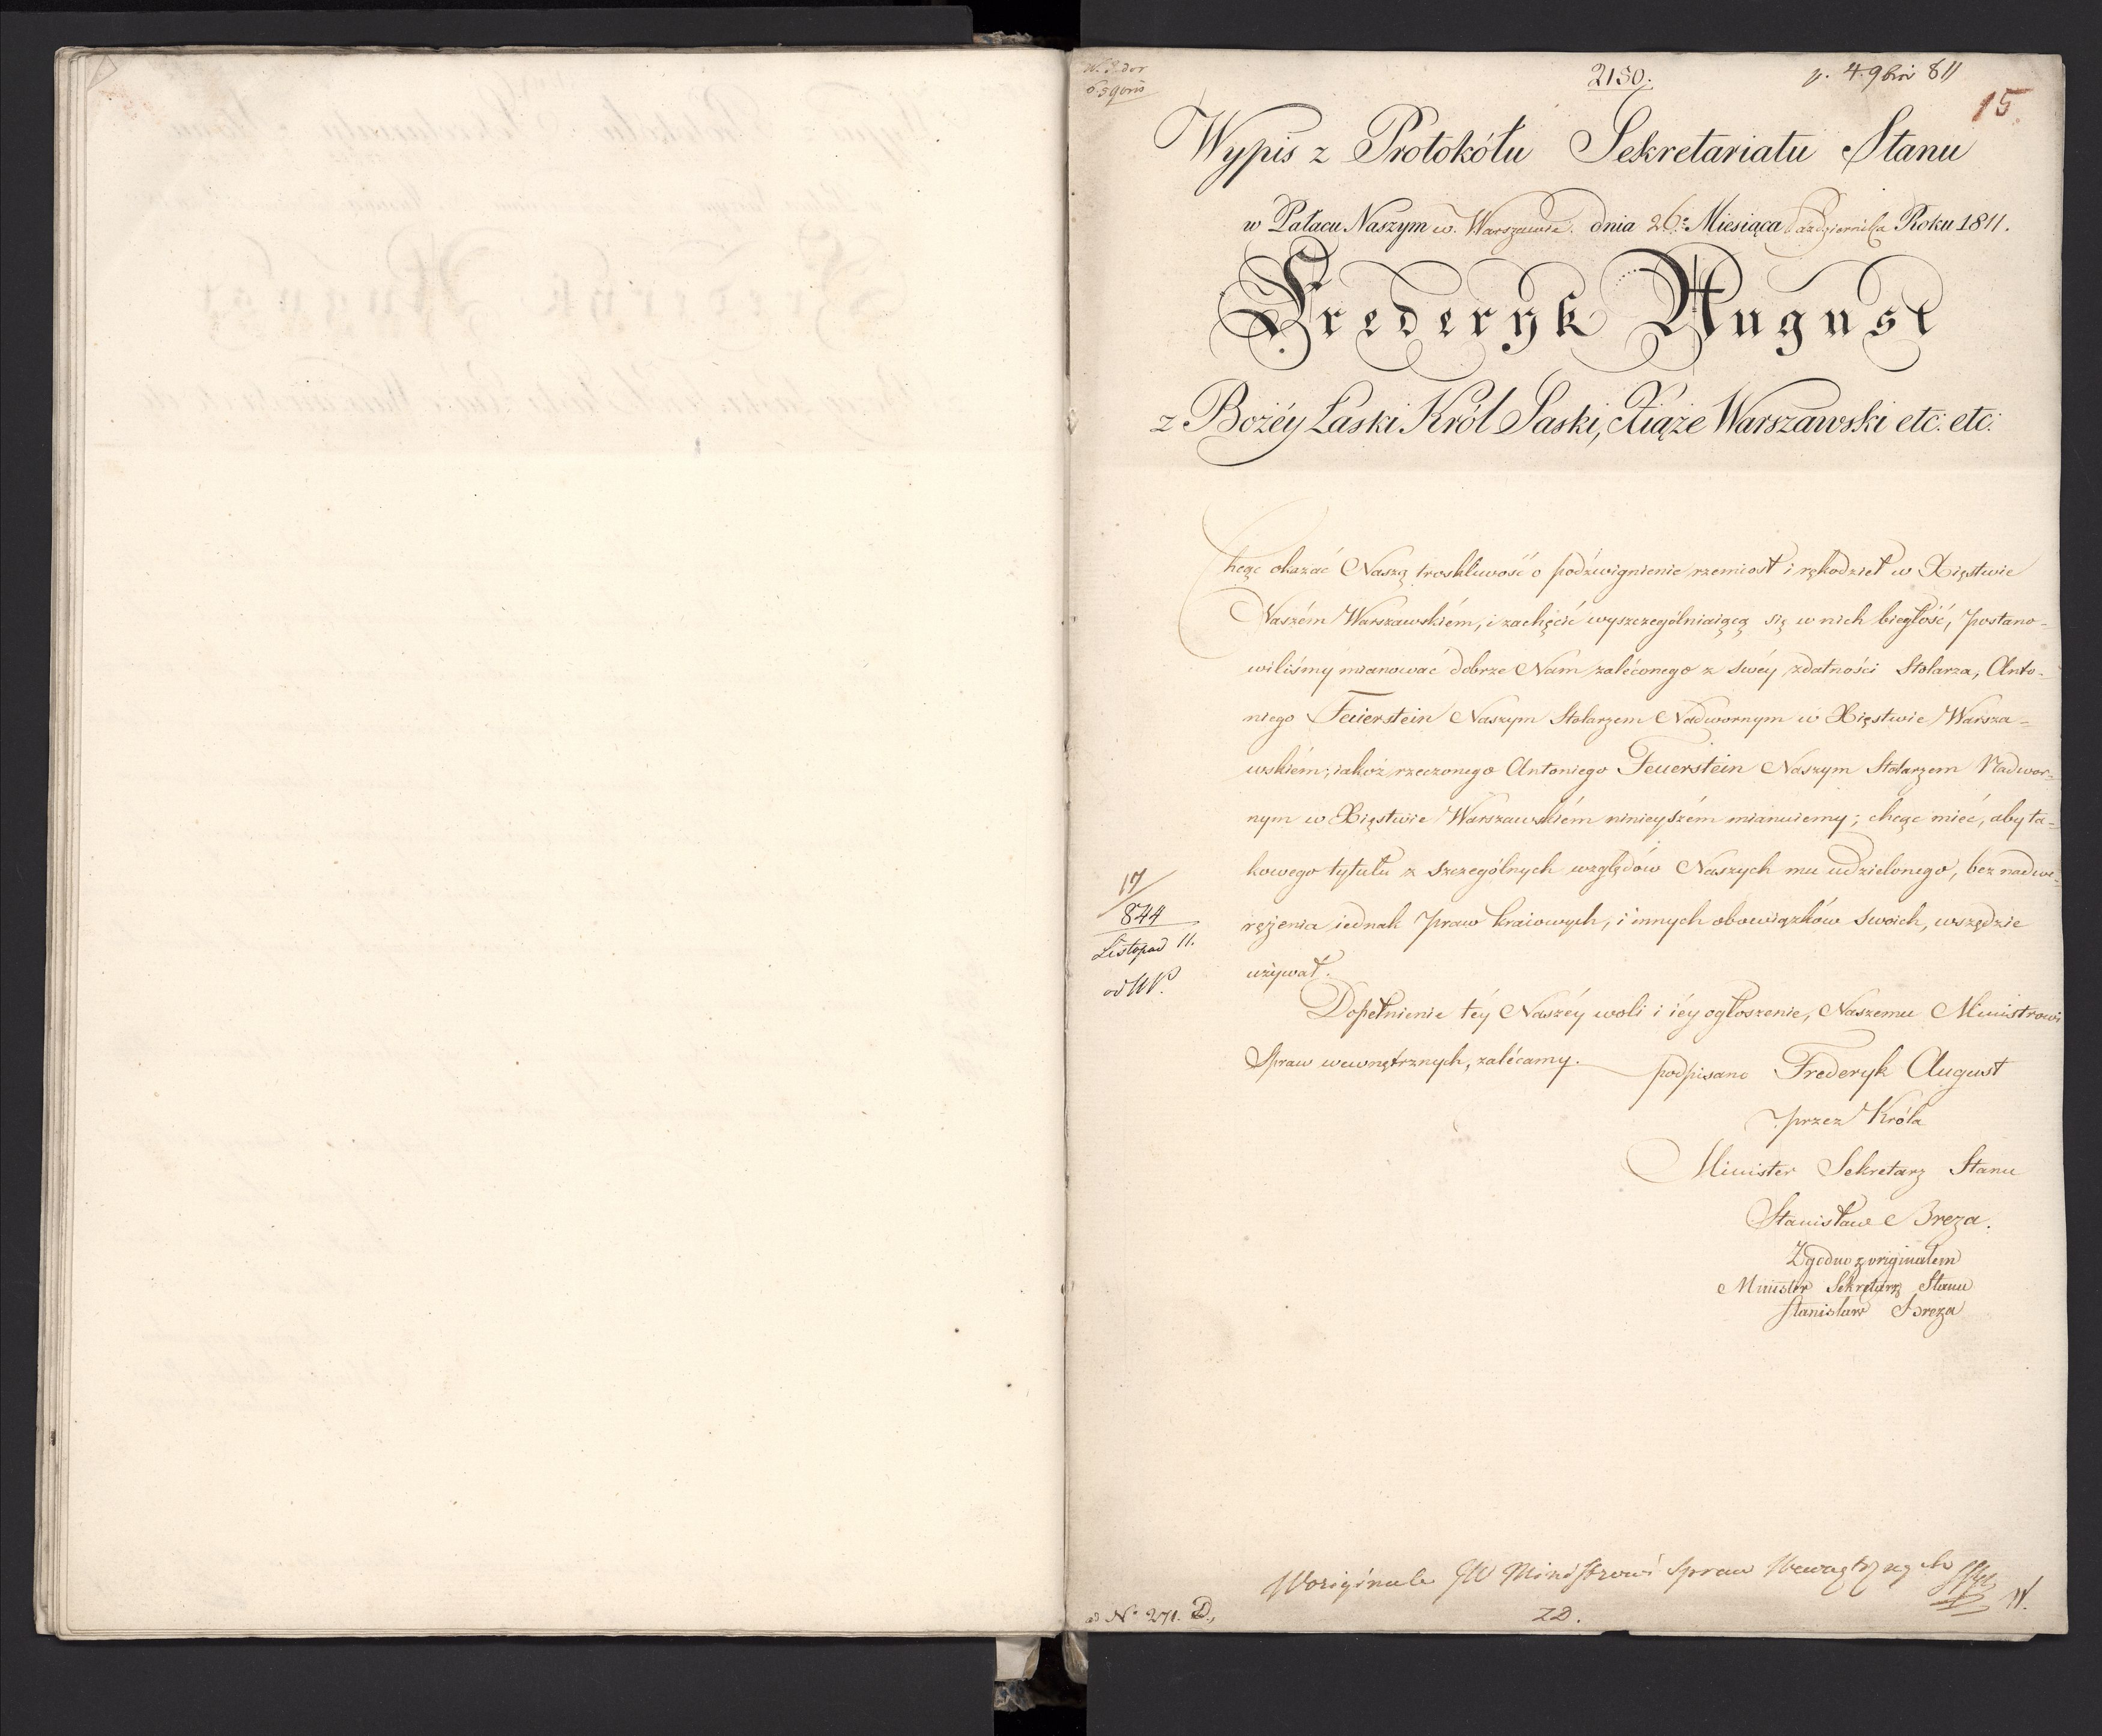 2180.
p. 4. 9bri 811
15.
Wypis z Protokółu Sekretariatu Stanu
w Pałacu Naszym w. Warszawie. dnia 26: Miesiąca Października Roku 1811.
Frederyk August
z Bożéy Łaski Król Saski, Xiąże Warszawski etc: etc:
Chcąc okazać Naszą troskliwość o podźwignienie rzemiosł i rękodzieł w Xięstwie
Naszém Warszawskiém, i zachęcić wyszczególniaiącą się w nich biegłość, postano=
wiliśmy mianować dobrze Nam zaléconego z swéy zdatności Stolarza, Anto=
niego Feuerstein Naszym Stolarzem Nadwornym w Xięstwie Warsza=
wskiém; iakoż rzeczonego Antoniego Feuerstein Naszym Stolarzem Nadwor=
nym w Xięstwie Warszawskiém ninieyszém mianuiemy; chcąc mieć, aby ta=
kowego tytułu z szczególnych względów Naszych mu udzielonego, bez nadwe=
rężenia iednak praw kraiowych, i innych obowiązków swoich, wszędzie
używał.
17/
844
Listopad 11.
od W.
Dopełnienie téy Naszéy woli i iéy ogłoszenie, Naszemu Ministrowi
Spraw wewnętrznych, zalécamy.
podpisano Frederyk August
przez Króla
Minister Sekretarz Stanu
Stanisław Breza.
Zgodno z originałem
Minister Sekretarz Stanu
Stanisław Breza
W originale JW Ministrowi Spraw Wewnętrznych
ad No 271. D.,
ZD.